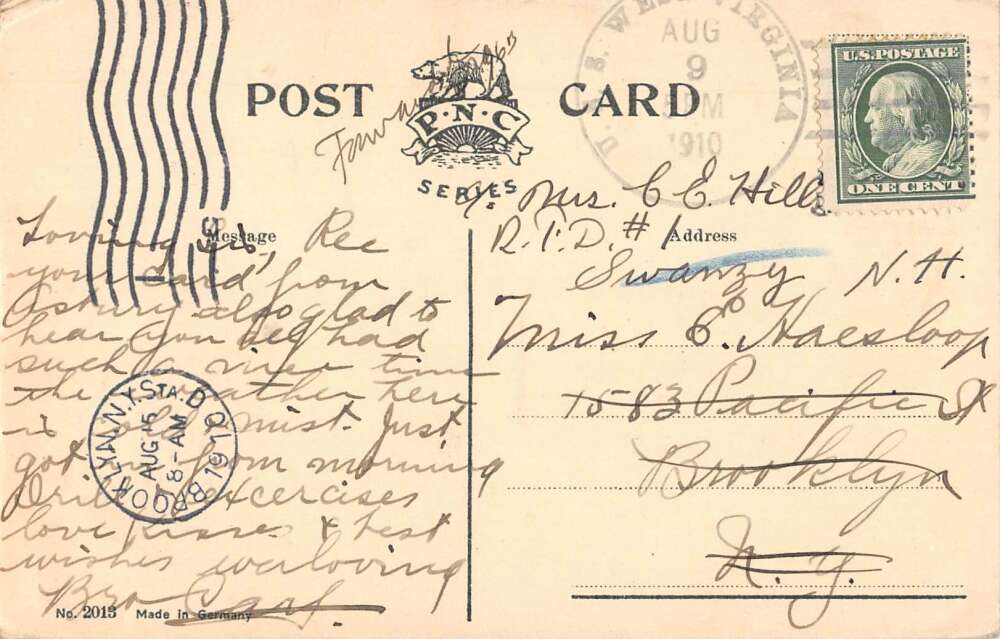 POST CARD
P·N·C
SERIES
U.S.S. WEST VIRGINIA
AUG
9
5 PM
1910
U.S. POSTAGE
ONE CENT
Message
Address
Loving Sis, Rec
your Card from
Asbury also glad to
hear you all had
such a nice time
the weather here
is cold mist. Just
got in from morning
Drill exercises
love kisses & best
wishes loving
Bro Carl
BROOKLYN, N.Y. STA. D
AUG 15
8-AM
1910
℅ Mrs. C E. Hill
R.F.D. #1
Swanzy N.H.
Miss E. Haesloop
1583 Pacific St
Brooklyn
N.Y.
No. 2013 Made in Germany